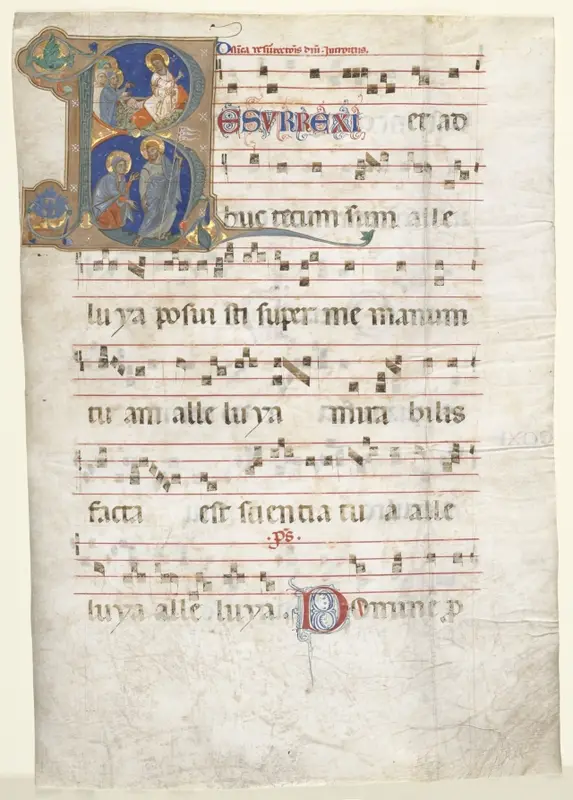 RESURREXI et ad
huc tecum sum alle
lu ya posui sti super me manum
tu am alle lu ya mira bilis
facta est scientia tu a alle
.ps.
lu ya alle lu ya. Domine p